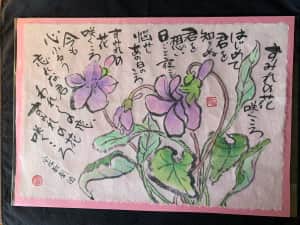 すみれの花
咲くころ
はじめて
君を
知りぬ
君を
想い
日ごと夜ごと
悩みし
あの日の
ころ
すみれの
花
咲くころ
今も
心ふるう
忘れな君
われらの恋
すみれの花
咲くころ